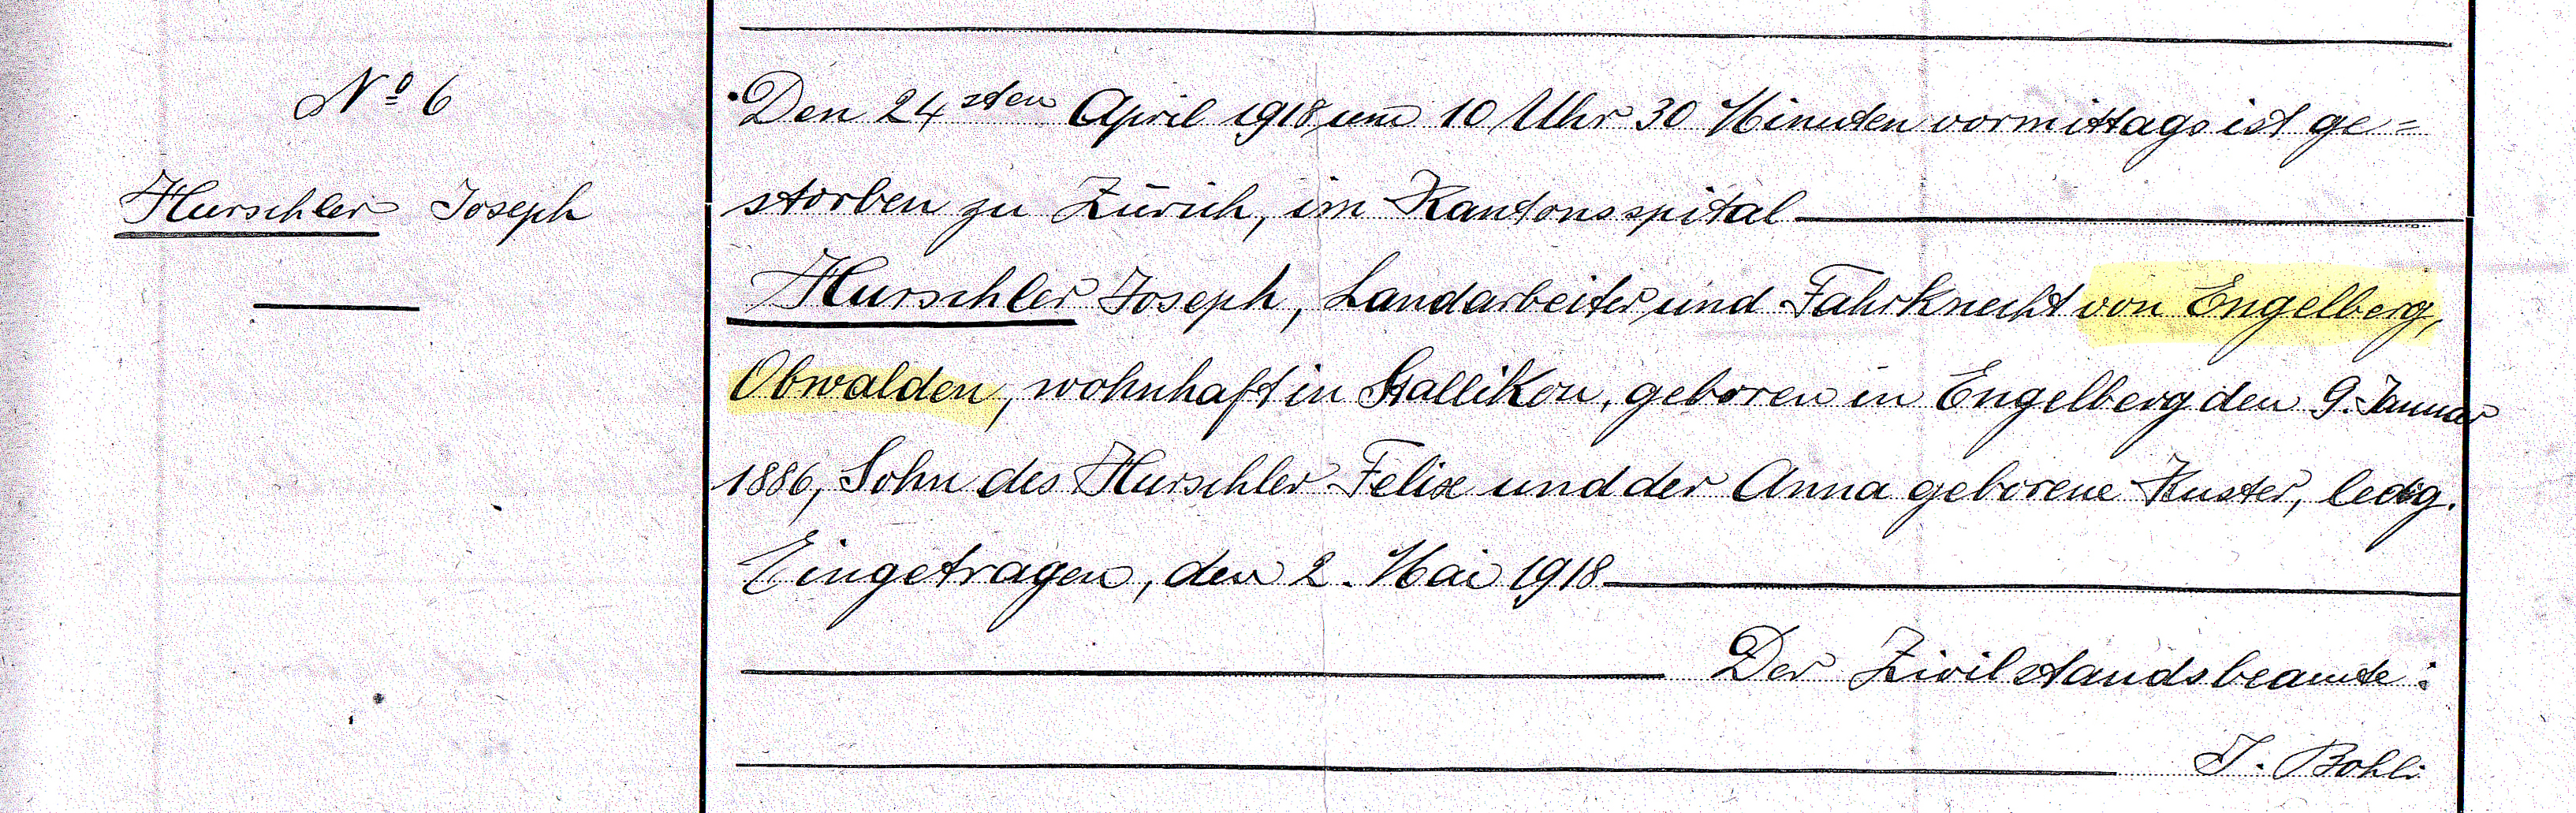 Nº 6
Hurschler Joseph
Den 24sten April 1918 um 10 Uhr 30 Minuten vormittags ist ge=
storben zu Zürich, im Kantonsspital
Hurschler Joseph, Landarbeiter und Fahrknecht von Engelberg,
Obwalden, wohnhaft in Stallikon, geboren in Engelberg den 9. Januar
1886, Sohn des Hurschler Felix und der Anna geborene Kuster, ledig.
Eingetragen, den 2. Mai 1918
Der Zivilstandsbeamte:
J. Bohli